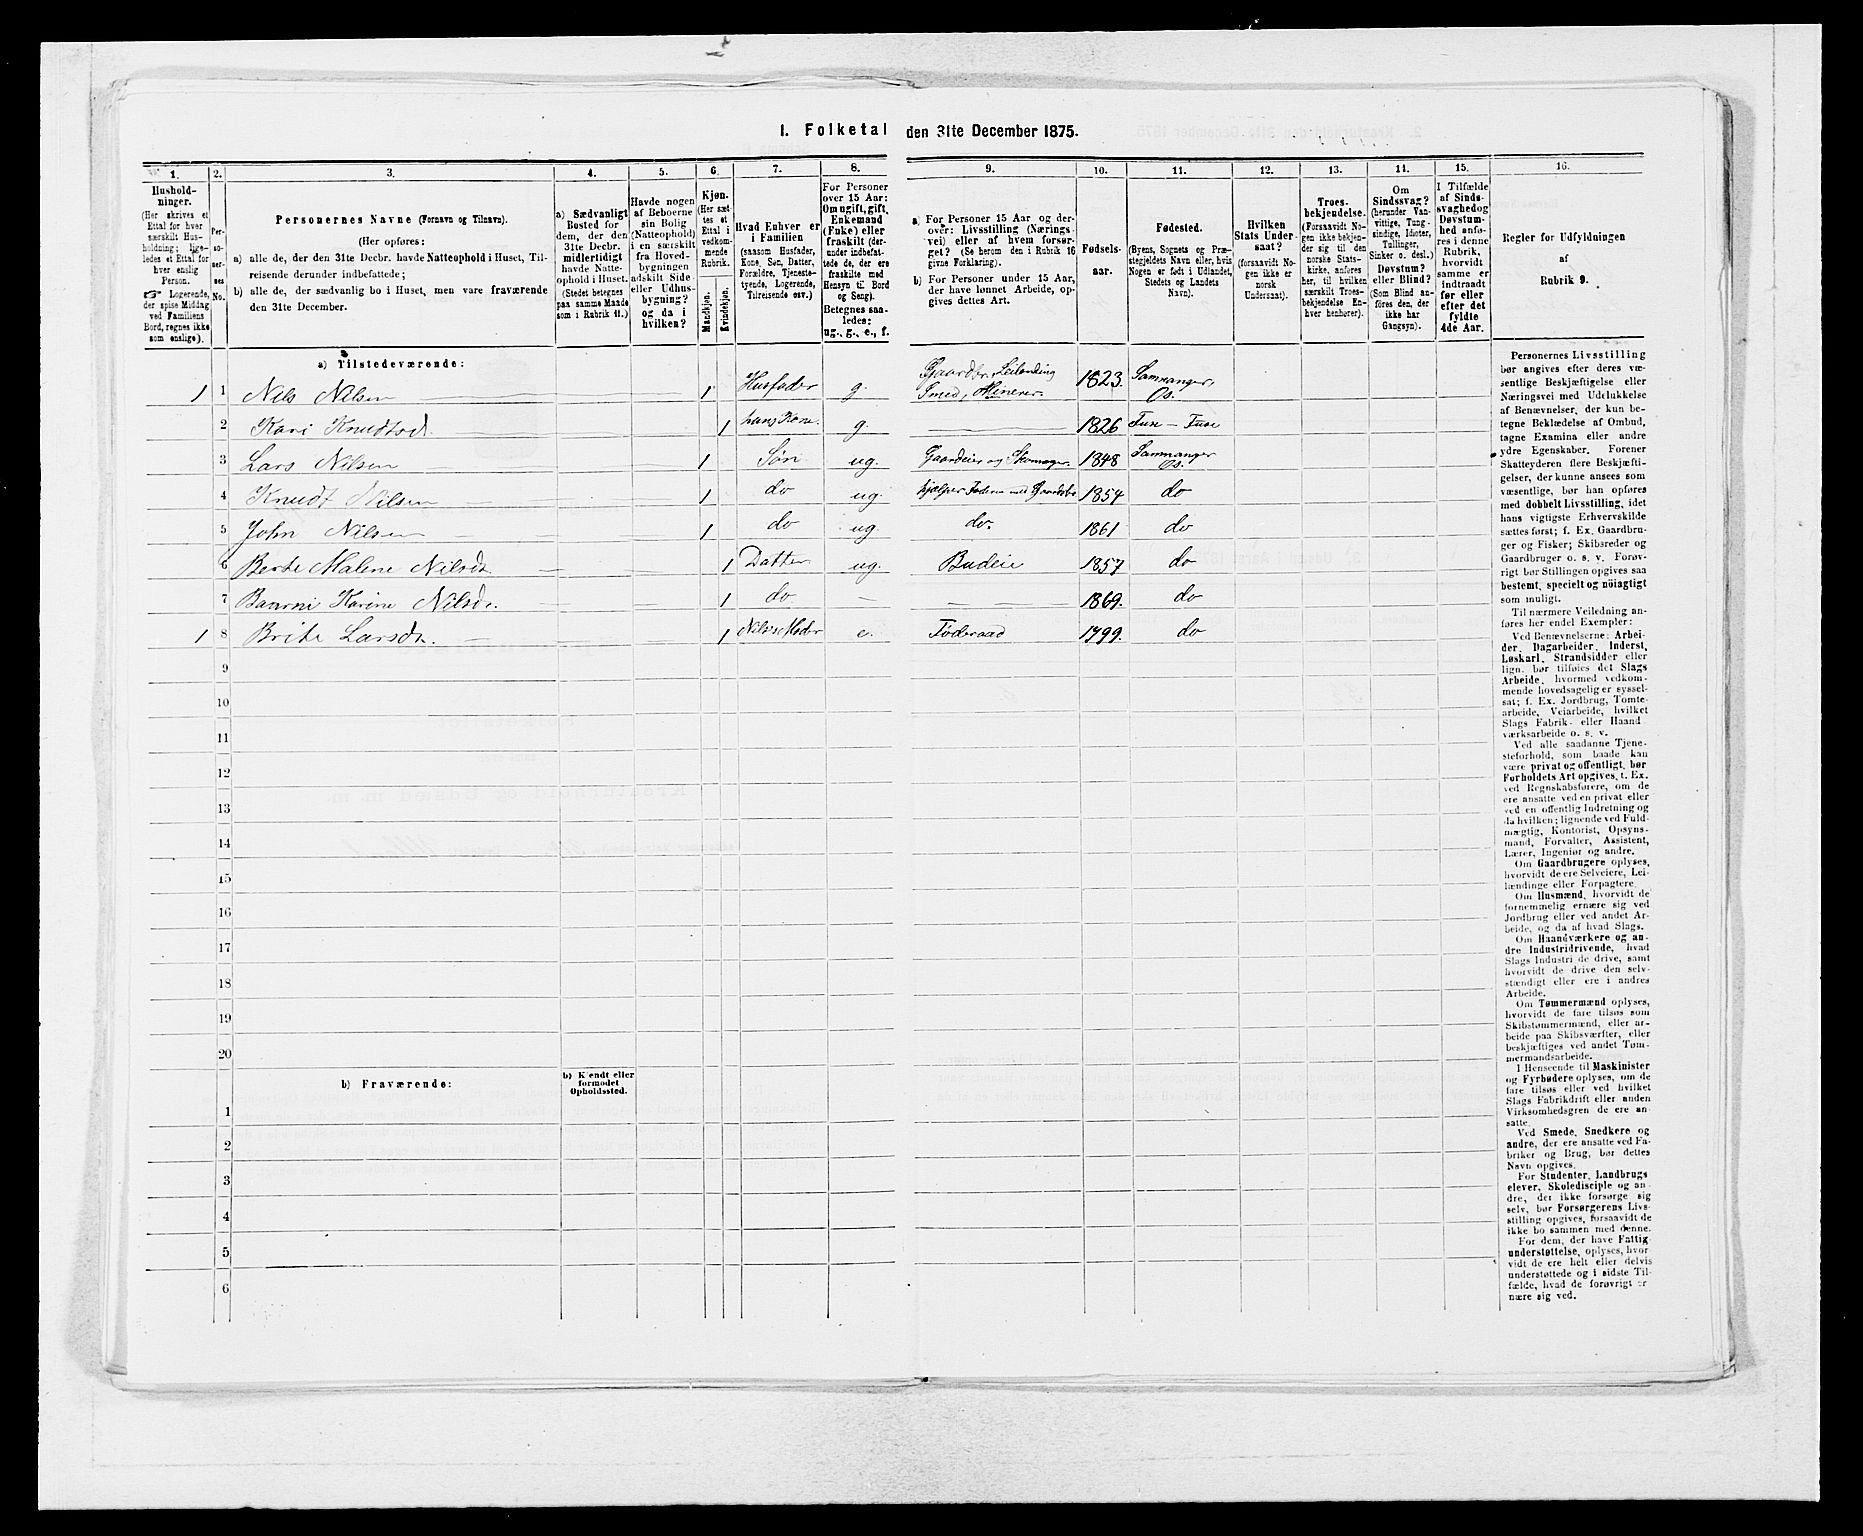 1. Folketal den 31te December 1875.
1.
2.
3.
4.
5.
6.
7.
8.
9.
10.
11.
12.
13.
14.
15.
16.
Hushold-
ninger.
(Her skrives et
Ettal for hver
særskilt Hus-
holdning; lige-
ledes et Ettal
for hver enslig
Person.
☞ Logerende,
der spise Middag
ved Familiens
Bord, regnes ikke
som enslige).
Per-
so-
ner-
nes
No.
Personernes Navne (Fornavn og Tilnavn).
(Her opføres:
a) alle de, der den 31te Decbr. havde Natteophold i Huset, Til-
reisende derunder indbefattede;
b) alle de, der sædvanlig bo i Huset, men vare fraværende
den 31te December.
a) Sædvanligt
Bosted for
dem, der den
31te Decbr.
midlertidigt
havde Natte-
ophold i Huset.
(Stedet betegnes
paa samme Maade
som i Rubrik 11.)
Havde nogen
af Beboerne
sin Bolig
(Natteophold)
i en særskilt
fra Hoved-
bygningen
adskilt Side-
eller Udhus-
bygning?
og da i
hvilken?
Kjøn.
(Her sæt-
tes et
Ettal i
vedkom-
mende
Rubrik.
Mandkjøn.
Kvindekjøn.
Hvad Enhver er
i Familien
(saasom Husfader,
Kone, Søn, Datter,
Forældre, Tjeneste-
tyende, Logerende,
Tilreisende osv.)
For Personer
over 15 Aar:
Om ugift, gift,
Enkemand
(Enke) eller
fraskilt (der-
under indbefat-
tede de, der ere
fraskilte med
Hensyn til Bord
og Seng).
Betegnes saa-
ledes:
ug., g., e., f.
a) For Personer 15 Aar og der-
over: Livsstilling (Nærings-
vei) eller af hvem forsør-
get? (Se herom den i Rubrik 16
givne Forklaring).
b) For Personer under 15 Aar,
der have lønnet Arbeide, op-
gives dettes Art.
Fødsels-
aar.
Fødested.
(Byens, Sognets og Præ-
stegjeldets Navn eller, hvis
Nogen er født i Udlandet,
Stedets og Landets
Navn).
Hvilken
Stats Under-
saat?
(forsaavidt No-
gen ikke er
norsk
Undersaat).
Troes-
bekjendelse.
(Forsaavidt No-
gen ikke bekjen-
der sig til den
norske Stats-
kirke, anføres
her, til hvilken
særskilt Troes-
bekjendelse En-
hver henhører).
Om
Sindssvag?
(herunder Van-
vittige, Tung-
sindige, Idioter,
Tullinger,
Sinker o. desl.)
Døvstum?
eller Blind?
(Som Blind an-
føres den, der
ikke har
Gangsyn).
I Tilfælde
af Sinds-
svaghed og
Døvstum-
hed anfø-
res i denne
Rubrik,
hvorvidt
samme er
indtraadt
før eller
efter det
fyldte
4de Aar.
Regler for Udfyldningen
af
Rubrik 9.
a) Tilstedeværende:
1 1 Nils Nilsen 1 Husfader g. Gaardbr. Leilending Smed, Minerer. 1823. Samnanger, Os.
2 Kari Knudtsd. 1 hans Kone. g. 1826 Fuse — Fuse
3 Lars Nilsen 1 Søn ug. Gaardeier og Skomager. 1848 Samnanger Os.
4 Knudt Nilsen 1 do ug. hjælper Faderen med Gaardsbr 1854 do
5 John Nilsen 1 do ug. do. 1861 do
6 Berte Malene Nilsdr 1 Datter ug. Budeie 1857 do
7 Karine Nilsdr. 1 do 1869. do
1 8 Brite Larsdr. 1 Nilss Moder e. Føderaad 1799. do
9
10
11
12
13
14
15
16
17
18
19
20
b) Fraværende:
b) Kjendt eller
formodet
Opholdssted.
1
2
3
4
5
6
Personernes Livsstilling
bør angives efter deres væ-
sentlige Beskjæftigelse eller
Næringsvei med Udelukkelse
af Benævnelser, der kun be-
tegne Beklædelse af Ombud,
tagne Examina eller andre
ydre Egenskaber. Forener
Skatteyderen flere Beskjæfti-
gelser, der kunne ansees som
væsentlige, bør han opføres
med dobbelt Livsstilling, idet
hans vigtigste Erhvervskilde
sættes først; f. Ex. Gaardbru-
ger og Fisker; Skibsreder og
Gaardbruger o. s. v. Forøv-
rigt bør Stillingen opgives saa
bestemt, specielt og nøiagtigt
som muligt.
Til nærmere Veiledning an-
føres her endel Exempler:
Ved Benævnelserne: Arbei-
der, Dagarbeider, Inderst,
Løskarl, Strandsidder eller
lign. bør tilføies det Slags
Arbeide, hvormed vedkom-
mende hovedsagelig er syssel-
sat; f. Ex. Jordbrug, Tomte-
arbeide, Veiarbeide, hvilket
Slags Fabrik- eller Haand-
værksarbeide o. s. v.
Ved alle saadanne Tjene-
steforhold, som baade kan
være privat og offentligt, bør
Forholdets Art opgives, t. Ex.
ved Regnskabsførere, om de
ere ansatte ved en privat eller
ved en offentlig Indretning og
da hvilken; lignende ved Fuld-
mægtig, Kontorist, Opsyns-
mand, Forvalter, Assistent,
Lærer, Ingeniør og andre.
Om Gaardbrugere oplyses,
hvorvidt de ere Selveiere, Lei-
lændinge eller Forpagtere.
Om Husmænd, hvorvidt de
fornemmelig ernære sig ved
Jordbrug eller ved andet Ar-
beide, og da af hvad Slags.
Om Haandværkere og an-
dre Industridrivende, hvad
Slags Industri de drive, samt
hvorvidt de drive den selv-
stændigt eller ere i andres
Arbeide.
Om Tømmermænd oplyses,
hvorvidt de fare tilsøs som
Skibstømmermænd, eller ar-
beide paa Skibsværfter, eller
beskjæftiges ved andet Tøm-
mermandsarbeide.
I Henseende til Maskinister
og Fyrbødere oplyses, om de
fare tilsøs eller ved hvilket
Slags Fabrikdrift eller anden
Virksomhedsgren de ere an-
satte.
Ved Smede, Snedkere og
andre, der ere ansatte ved Fa-
briker og Brug, bør dettes
Navn opgives.
For Studenter, Landbrugs-
elever, Skoledisciple og an-
dre, der ikke forsørge sig
selv, bør Forsørgerens Livs-
stilling opgives, forsaavidt de
ikke bo sammen med denne.
For dem, der have Fattig-
understøttelse, oplyses, hvor-
vidt de ere helt eller delvis
understøttede og i sidste Til-
fælde, hvad de forøvrigt er-
nære sig ved.